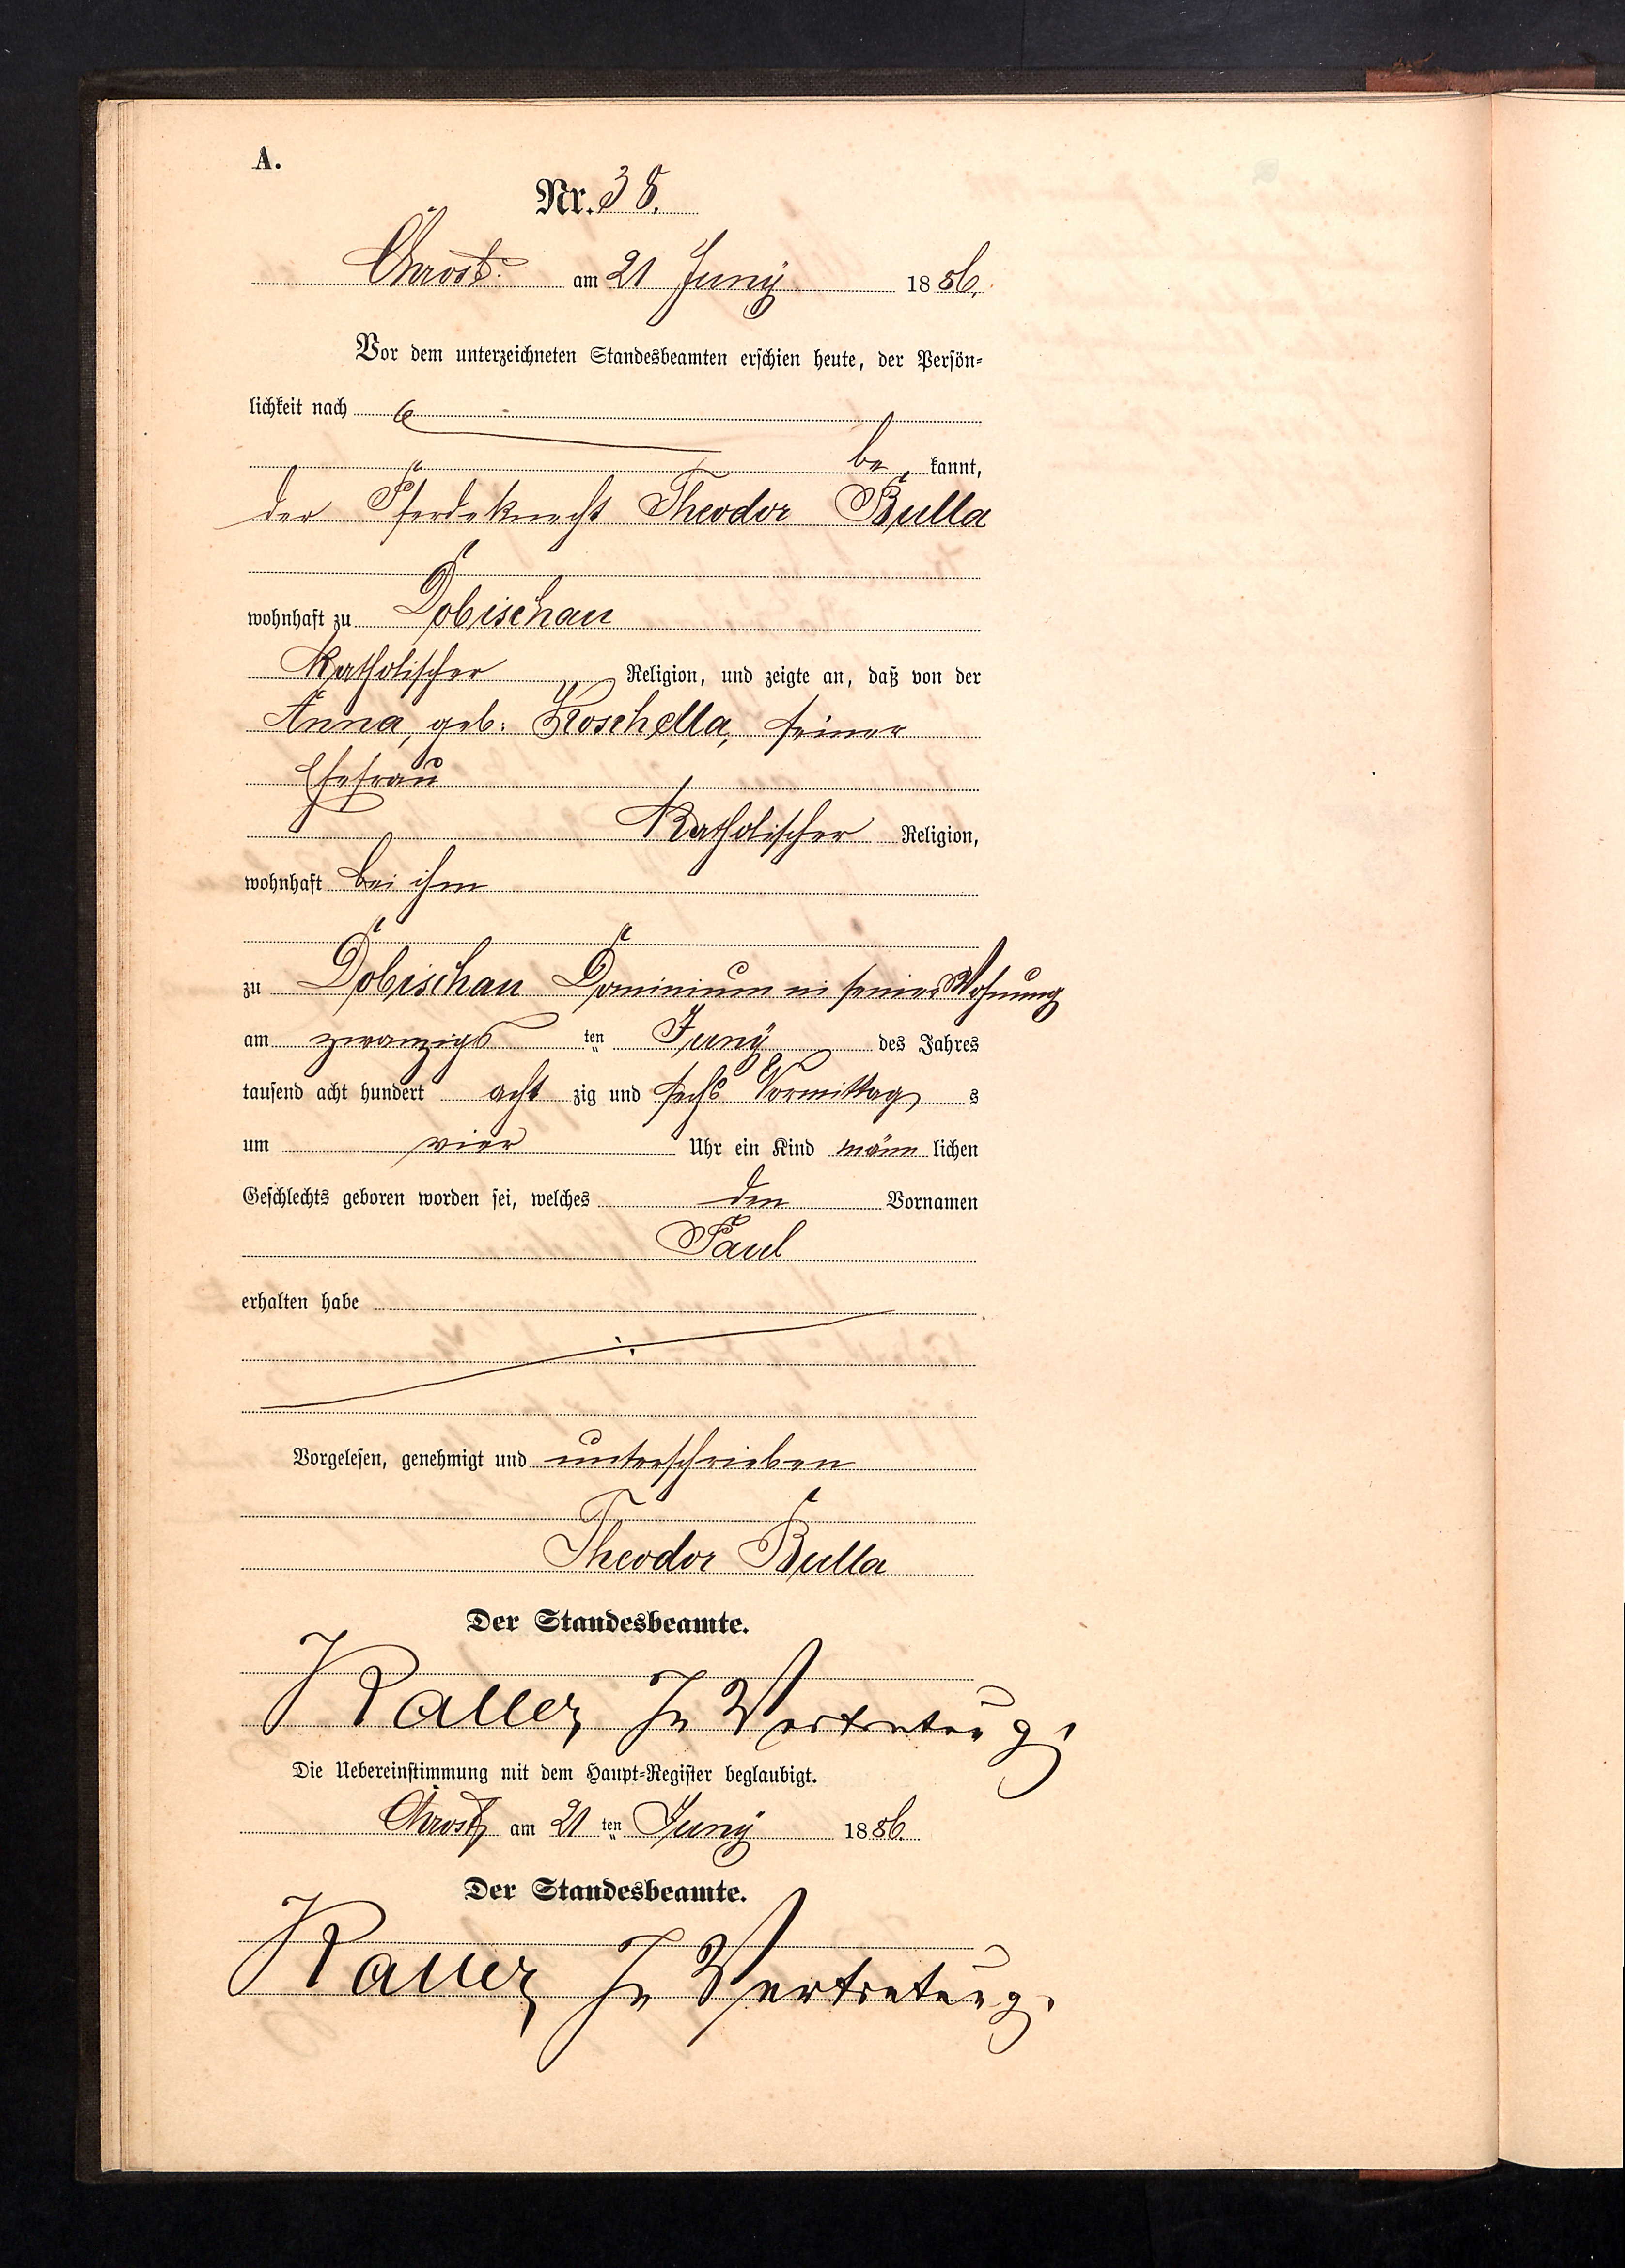 A.
Nr. 38.
Chrost. am 21 Juny 1886.
Vor dem unterzeichneten Standesbeamten erschien heute, der Persön-
lichkeit nach
be kannt,
der Pferdeknecht Theodor Bulla
wohnhaft zu Dobischau
Katholischer Religion, und zeigte an, daß von der
Anna, geb: Koschella, seiner
Ehefrau
Katholischer Religion,
wohnhaft bei ihm
zu Dobischau Dominium in seiner Wohnung
am zwanzigs ten Juny des Jahres
tausend acht hundert acht zig und sechs Vormittag s
um vier Uhr ein Kind männ lichen
Geschlechts geboren worden sei, welches den Vornamen
Paul
erhalten habe
Vorgelesen, genehmigt und unterschrieben
Theodor Bulla
Der Standesbeamte.
In Vertretung.
Die Uebereinstimmung mit dem Haupt-Register beglaubigt.
Chrost am 21 ten Juny 1886.
Der Standesbeamte.
In Vertretung.